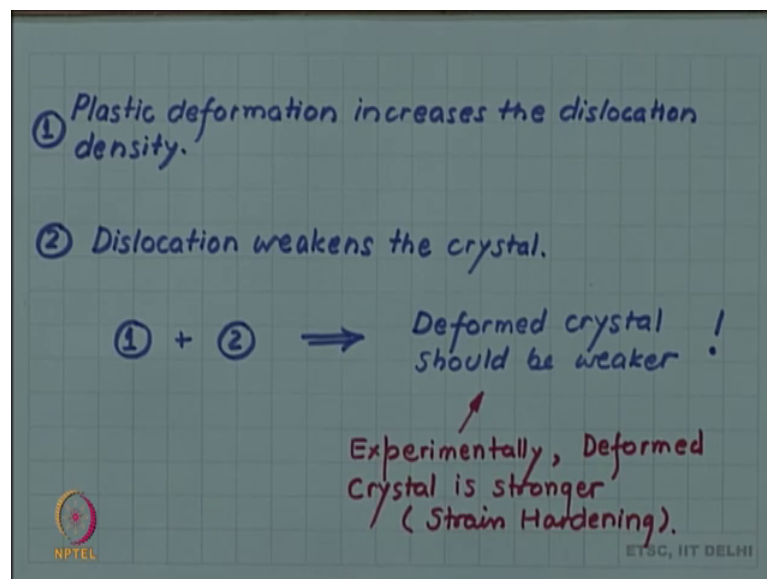 ① Plastic deformation increases the dislocation
density.
② Dislocation weakens the crystal.
① + ② ⟹ Deformed crystal
should be weaker !
Experimentally, Deformed
Crystal is stronger
( Strain Hardening).
NPTEL
ETSC, IIT DELHI